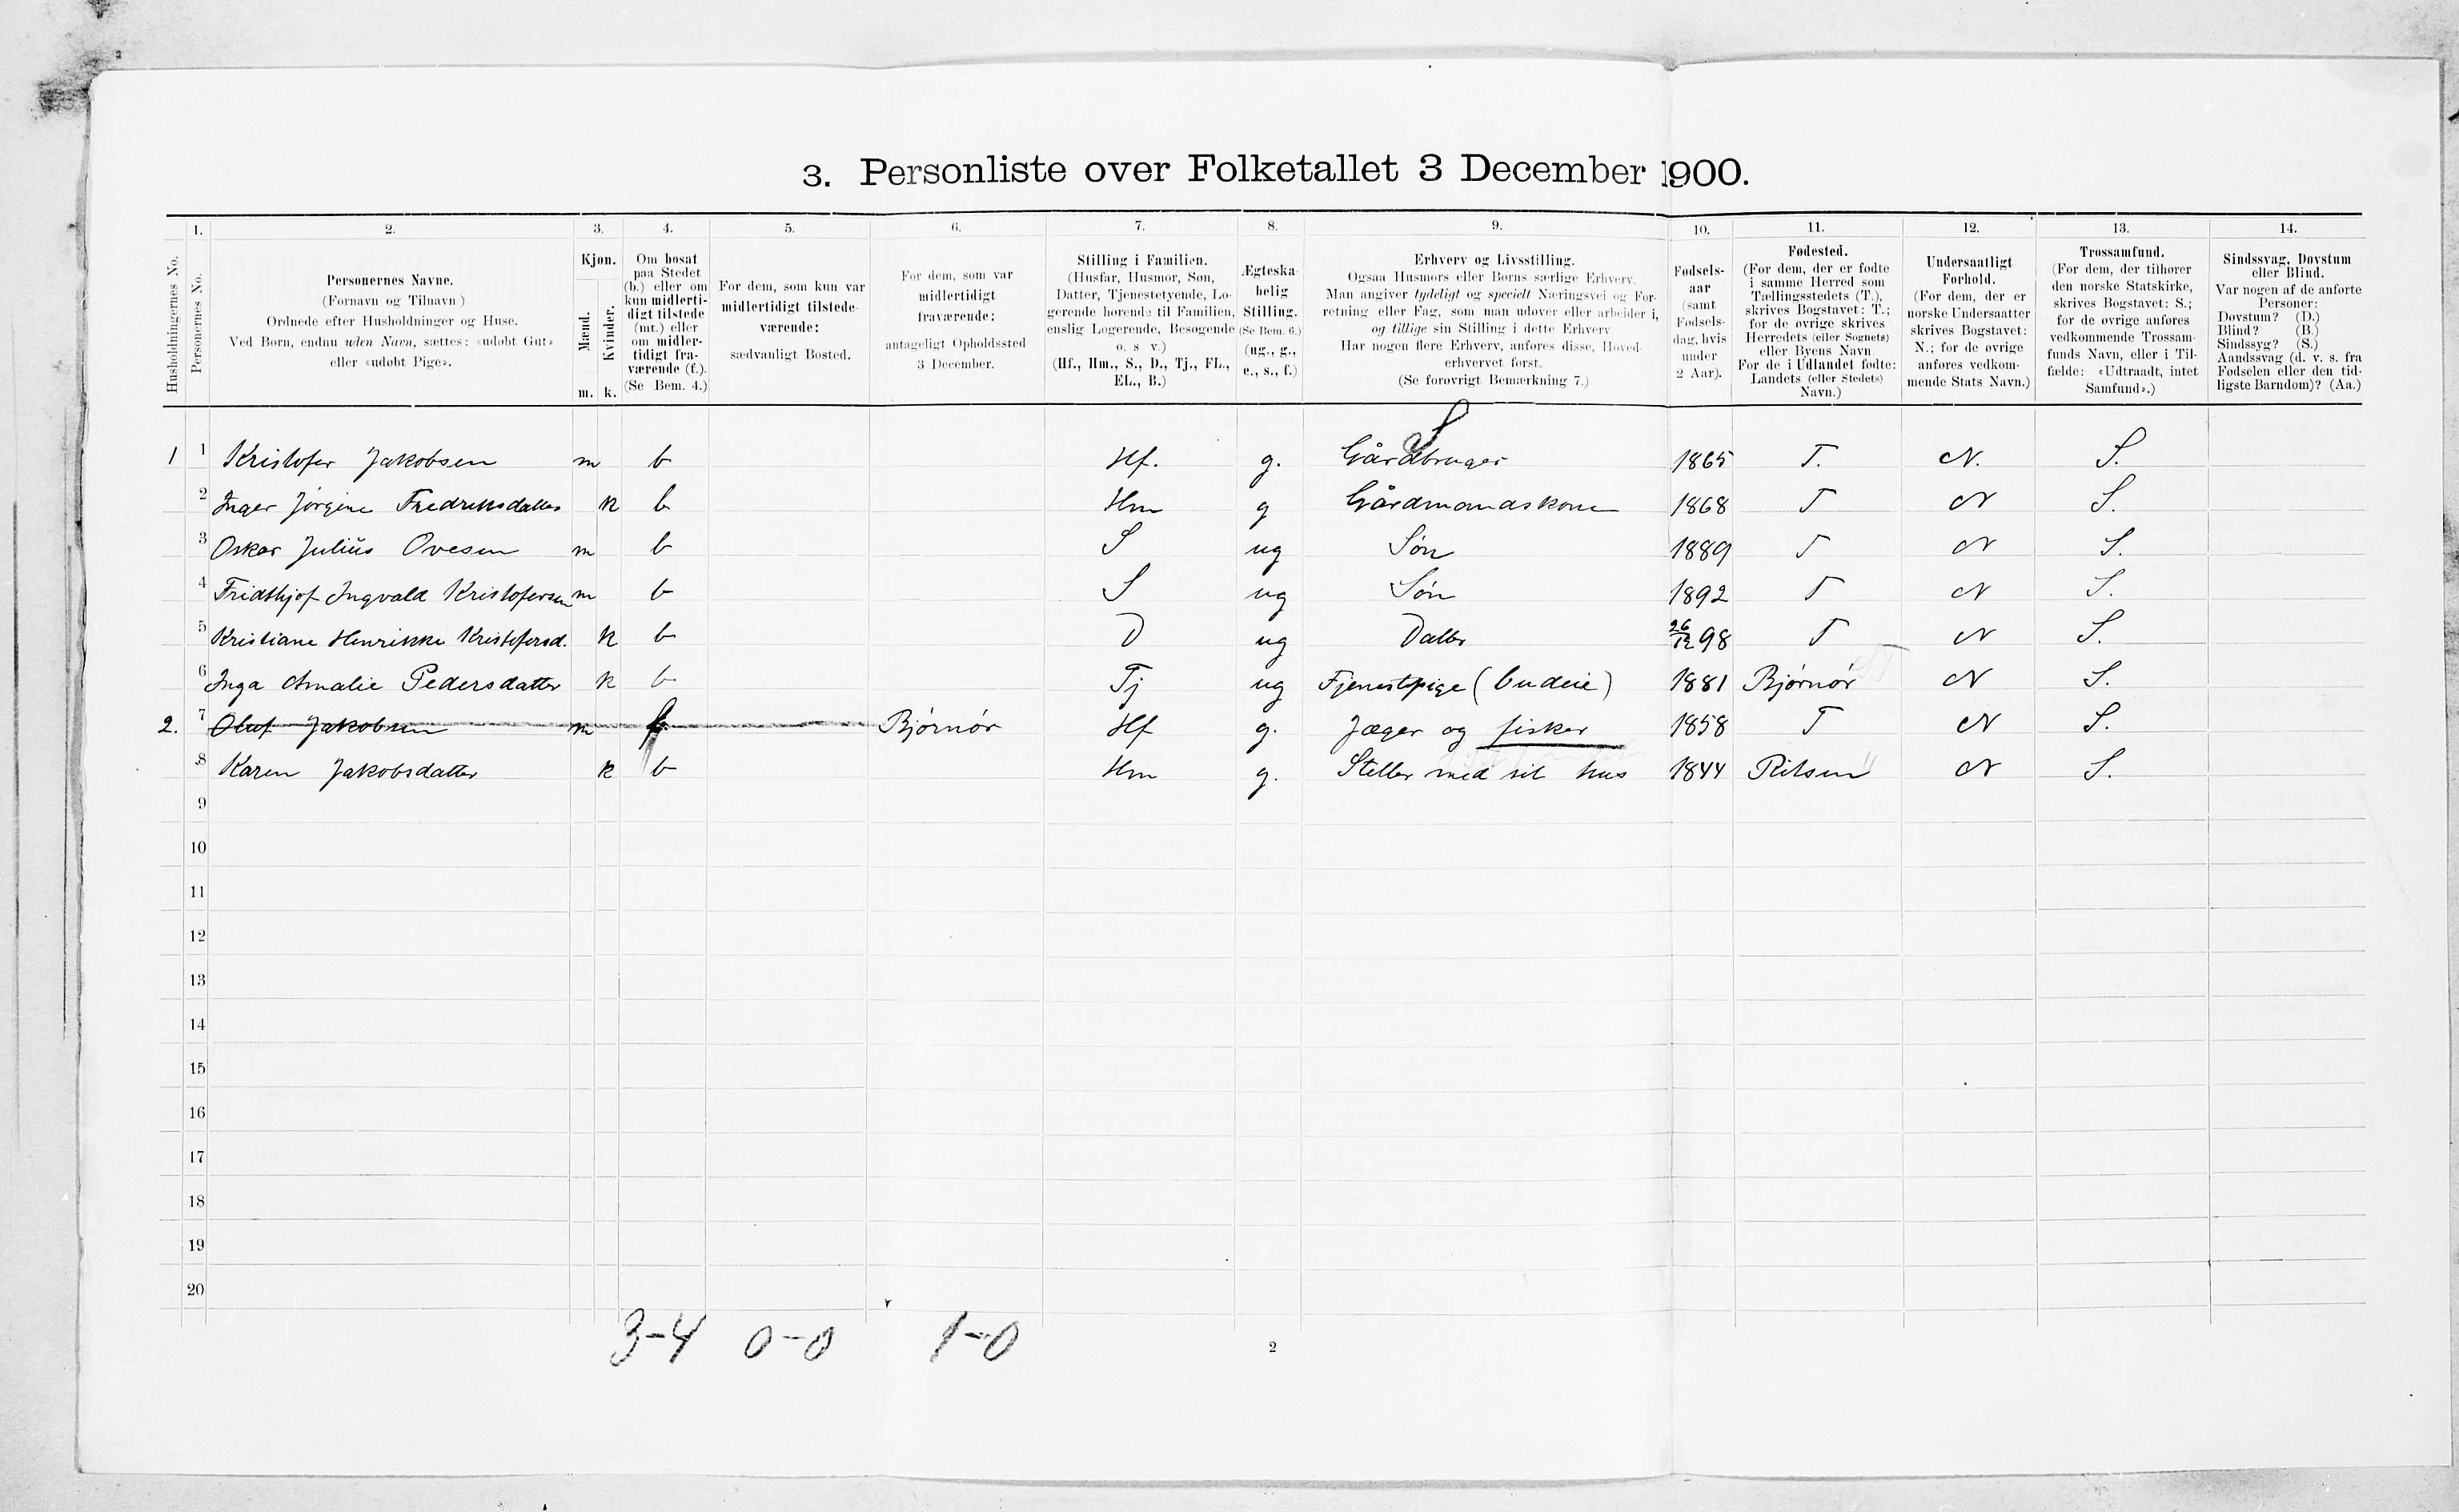 3. Personliste over Folketallet 3 December 1900.
1. 2. 3. 4. 5. 6. 7. 8. 9. 10. 11. 12. 13. 14.
Husholdningernes No.
Personernes No.
Personernes Navne.
(Fornavn og Tilnavn)
Ordnede efter Husholdninger og Huse.
Ved Børn, endnu uden Navn, sættes: «udøbt Gut»
eller «udøbt Pige».
Kjøn.
Mænd.
Kvinder.
m. k.
Om bosat
paa Stedet
(b.) eller om
kun midlerti-
digt tilstede
(mt.) eller
om midler-
tidigt fra-
værende (f.).
(Se Bem. 4.)
For dem, som kun var
midlertidigt tilstede-
værende:
sædvanligt Bosted.
For dem, som var
midlertidigt
fraværende:
antageligt Opholdssted
3 December.
Stilling i Familien.
(Husfar, Husmor, Søn,
Datter, Tjenestetyende, Lo-
gerende hørende til Familien,
enslig Logerende, Besøgende
o. s. v.)
(Hf., Hm., S., D., Tj., FL.,
EL., B.)
Ægteska-
belig
Stilling.
(Se Bem. 6.)
(ug., g.,
e., s., f.)
Erhverv og Livsstilling.
Ogsaa Husmors eller Børns særlige Erhverv.
Man angiver tydeligt og specielt Næringsvei og For-
retning eller Fag, som man udøver eller arbeider i,
og tillige sin Stilling i dette Erhverv.
Har nogen flere Erhverv, anføres disse, Hoved-
erhvervet først.
(Se forøvrigt Bemærkning 7.)
Fødsels-
aar
(samt
Fødsels-
dag, hvis
under
2 Aar).
Fødested.
(For dem, der er fødte
i samme Herred som
Tællingsstedets (T.),
skrives Bogstavet: T.;
for de øvrige skrives
Herredets (eller Sognets)
eller Byens Navn.
For de i Udlandet fødte:
Landets (eller Stedets)
Navn.)
Undersaatligt
Forhold.
(For dem, der er
norske Undersaatter
skrives Bogstavet:
N.; for de øvrige
anføres vedkom-
mende Stats Navn.)
Trossamfund.
(For dem, der tilhører
den norske Statskirke,
skrives Bogstavet: S.;
for de øvrige anføres
vedkommende Trossam-
funds Navn, eller i Til-
fælde: «Udtraadt, intet
Samfund».)
Sindssvag, Døvstum
eller Blind.
Var nogen af de anførte
Personer:
Døvstum? (D.)
Blind? (B.)
Sindssyg? (S.)
Aandssvag (d. v. s. fra
Fødselen eller den tid-
ligste Barndom)? (Aa.)
1 1 Kristofer Jakobsen m b Hf. g. Gårdbruger 1865 T. N. S.
2 Inger Jørgine Fredriksdatter k b Hm g Gårdmandskone 1868 T N S.
3 Oskar Julius Ovesen m b S ug Søn 1889 T N S.
4 Fridthjof Ingvald Kristofersen m b S ug Søn 1892 T N S.
5 Kristiane Henrikke Kristofersd. k b D ug Datter 26/12 98 T N S.
6 Inga Amalie Pedersdatter k b Tj ug Tjenestpige (budeie) 1881 Bjørnør N S.
2. 7 Oluf Jakobsen m f Bjørnør Hf g. Jæger og fisker 1858 T N S.
8 Karen Jakobsdatter k b Hm g. Steller med sit hus 1844 Ritsen N S.
9
10
11
12
13
14
15
16
17
18
19
20
3-4 0-0 1-0
2